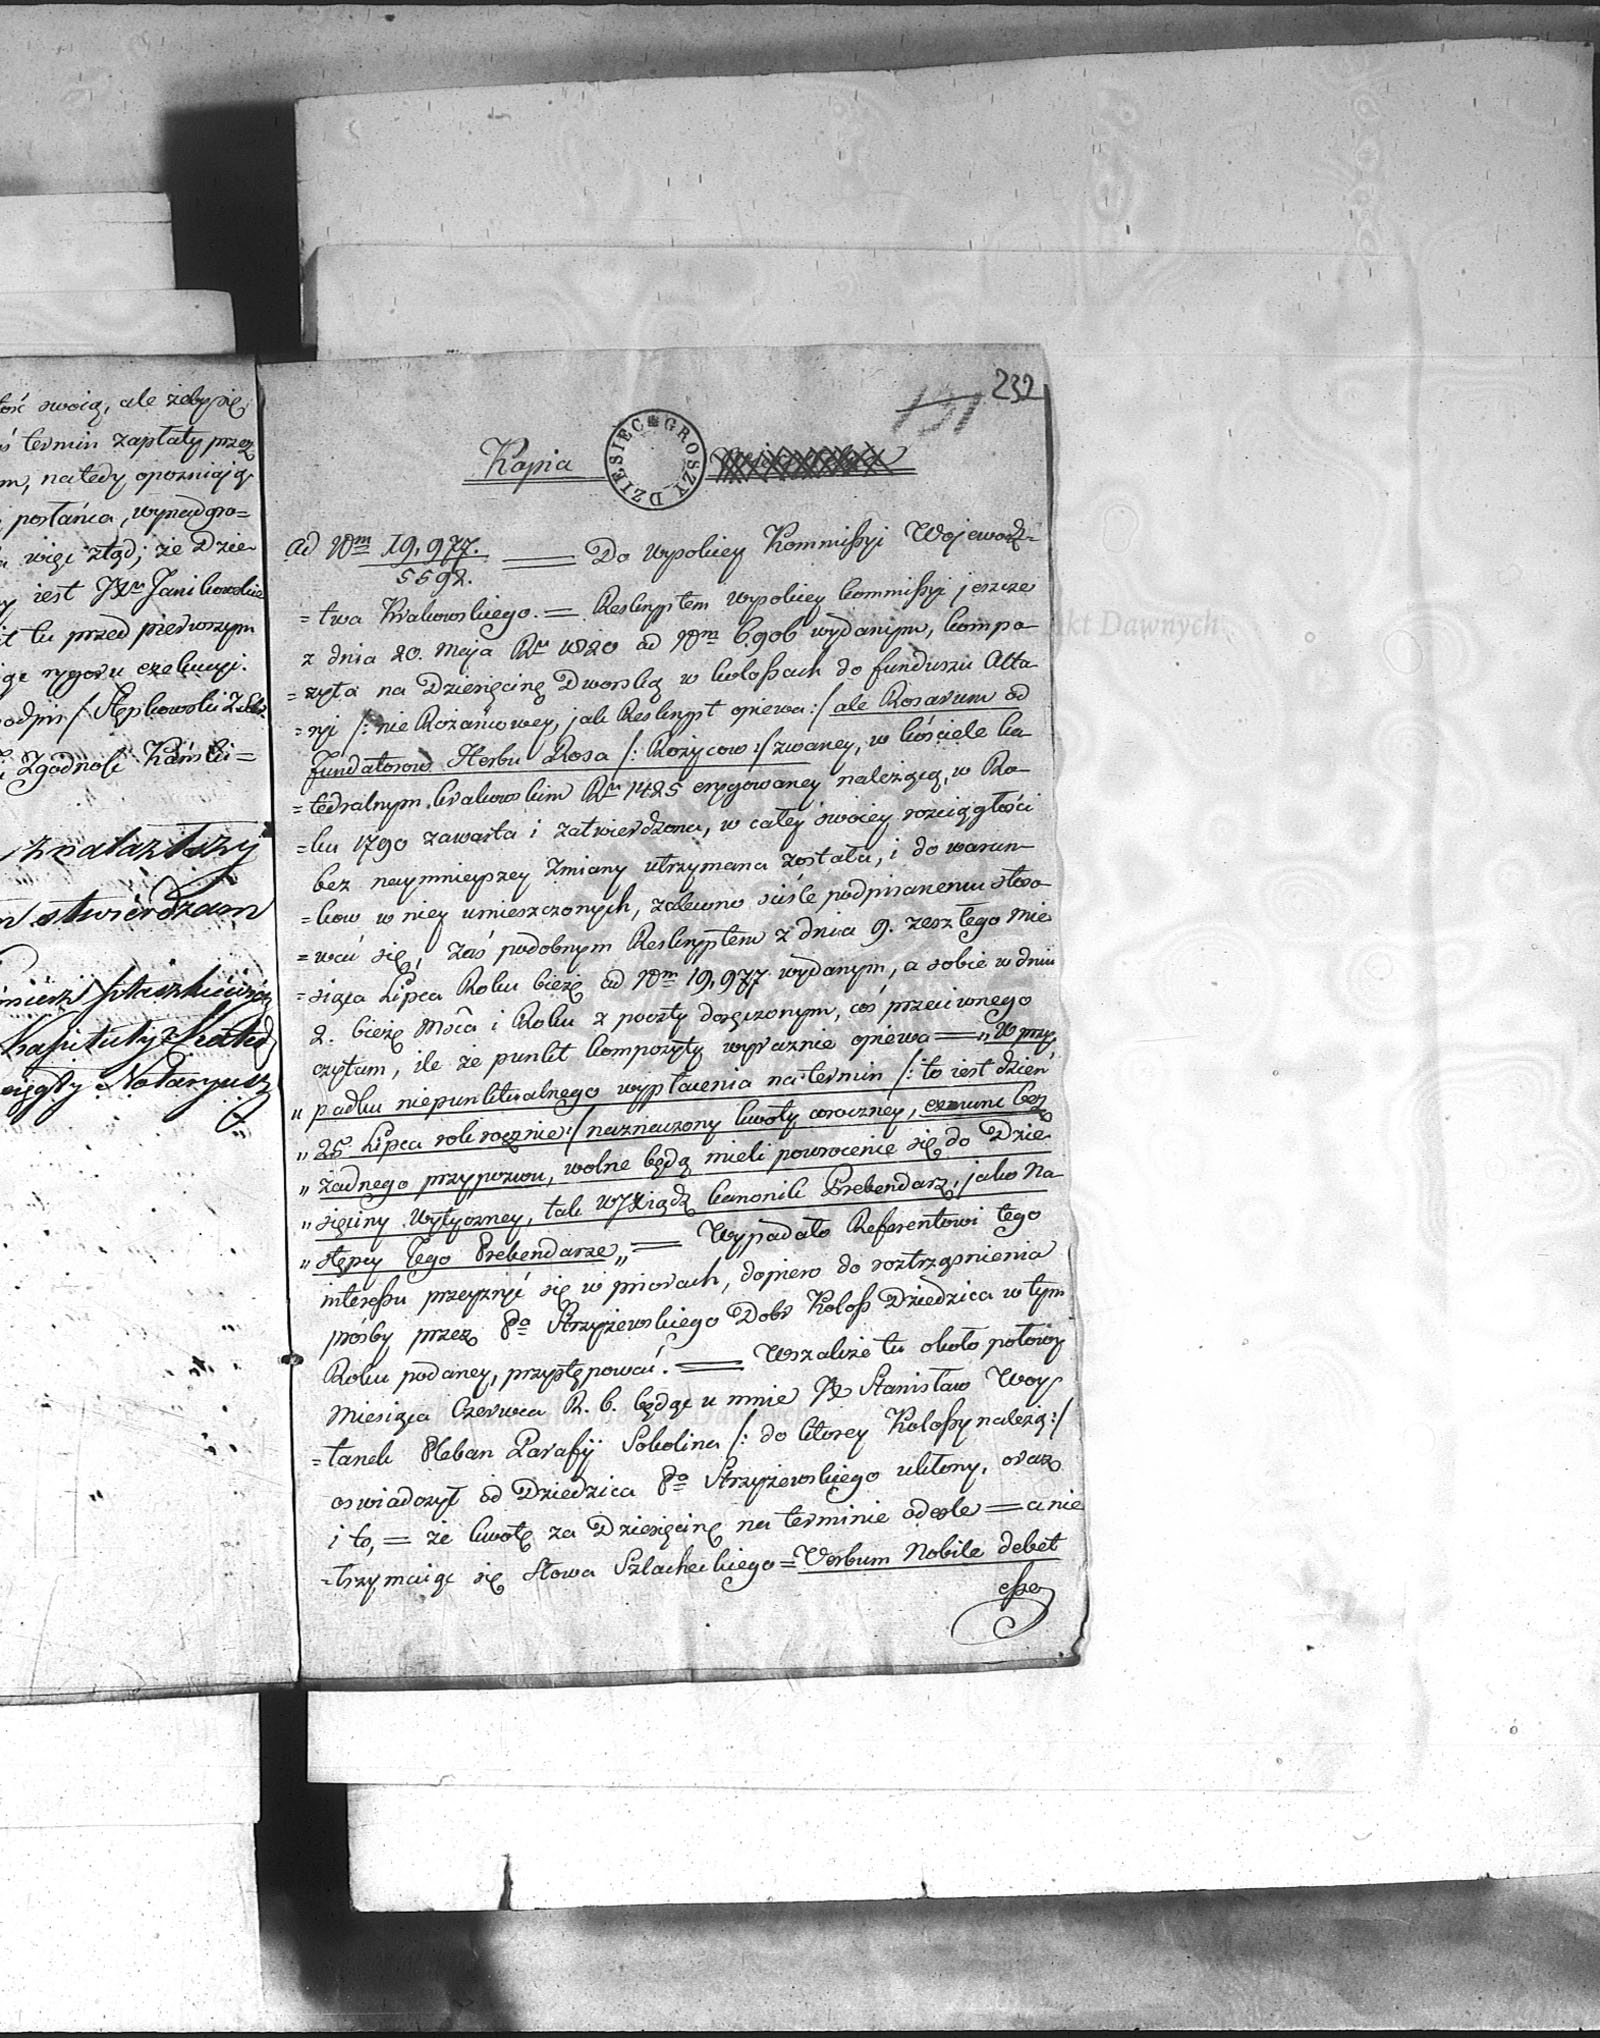 tość swoią, ale żeby się
ś termin zapłaty przez
m, natedy opozniaiąc
posłańca, wynadgro=
więc ztąd; że Dzie-
iest JXn Janikowskie
it tu przed pierwszym
ige rygoru exekucyi.
odpis /: Stępkowski Z. S.
Zgodność Kański=
znalazłszy
stwierdzam
Ptaszkiewicz
Kapituły Kated
Notaryusz
232
131
Kopia
DZIESIĘĆ GROSZY
ad Nrm 19,977. / 5592. = Do Wysokiey Kommissyi Wojewodz=
=twa Krakowskiego. = Reskryptem Wysokiey kommissyi jeszcze
z dnia 20. Maja Ru 1820 ad Nrm 6906 wydanym, kompo-
=zyta na Dziesięcinę Dworską w kolosach do funduszu Alta-
=ryi /: nie Rożańcowey, jak Reskrypt opiewa :/ ale Rosarum od
fundatorow Herbu Rosa /: Rożycow :/ zwaney, w kościele ka-
=tedralnym krakowskim Ru 1425 erygowaney należącą, w Ro-
=ku 1790 zawarta i zatwierdzona, w całey swoiey rozciągłości
bez naymnieyszey zmiany utrzymana została, i do warun-
=kow w niey umieszczonych, zalecono ściśle podpisanemu stoso-
=wać się, zaś podobnym Reskryptem z dnia 9. zeszłego Mie
=siąca Lipca Roku bieżę ad Nrm 19,977 wydanym, a sobie w dniu
2. bieżę Msca i Roku z poczty doręczonym, coś przeciwnego
czytam, ile że punkt kompozyty wyraznie opiewa = „W przy-
„ padku niepunktualnego wypłacenia na termin /: to iest dzień
„ 25 Lipca rok rocznie :/ naznaczony kwoty coroczney, ex nunc bez
„ żadnego przypozwu, wolne będą mieli powrocenie się do Dzie-
„ sięciny Wytyczney, tak WJXiądz kanonik Prebendarz, jako Na-
„ stępcy Jego Prebendarze„ = Wypadało Referentowi tego
interessu przeyzryć się w priorach, dopiero do roztrząsnienia
prośby przez Pa Strzyżewskiego Dobr Koloss Dziedzica w tym
Roku podaney, przystępować. = Wszakże tu około połowy
Miesiąca Czerwca R. b. będąc u mnie JX Stanisław Woy-
=tanek Pleban Parafii Sokolina /: do ktorey Kolossy należą :/
oswiadczył od Dziedzica Pa Strzyżewskiego ukłony, oraz
i to, = że kwotę za Dziesięcinę na terminie odeśle = a nie
=trzymaiąc się słowa Szlacheckiego = Verbum Nobile debet
esse